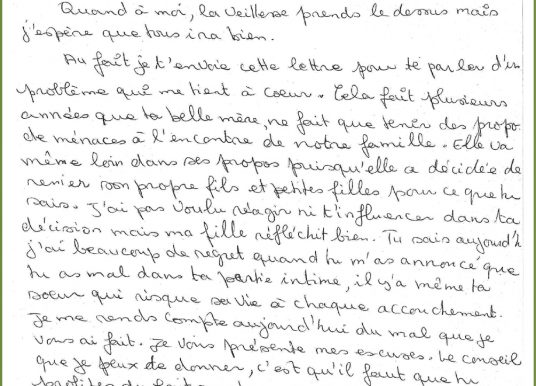 Quand à moi, la veillesse prends le dessus mais
j'espère que tous ira bien.
Au faît je t'envoie cette lettre pour te parler d'un
problème qui me tient à coeur. Cela fait plusieurs
années que ta belle mère, ne fait que tenir des propo
de ménaces à l'encontre de notre famille. Elle va
même loin dans ses propos puisqu'elle a décidée de
renier son propre fils et petites filles pour ce que tu
sais. J'ai pas voulu réagir ni t'influencer dans ta
décision mais ma fille réfléchit bien. Tu sais aujourd'h
j'ai beaucoup de regret quand tu m'as annonce que
tu as mal dans ta partie intime, il y'a même ta
soeur qui risque sa vie à chaque accouchement.
Je me rends compte aujourd'hui du mal que je
vous ai fait. Je vous présente mes excuses. Le conseil
que je peux te donner, c'est qu'il faut que tu